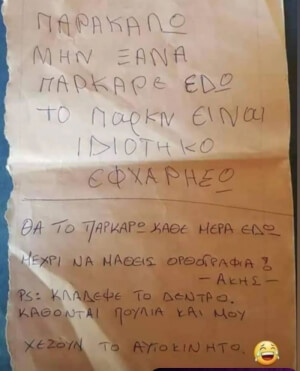 ΠΑΡΑΚΑΛΩ
ΜΗΝ ΞΑΝΑ
ΠΑΡΚΑΡΕ ΕΔΩ
ΤΟ ΠαΡΚΝ ΕΙΝαι
ΙΔΙΟΤΗΚΟ
ΕΦΧΑΡΗΣΩ
ΘΑ ΤΟ ΠΑΡΚΑΡΩ ΚΑΘΕ ΜΕΡΑ ΕΔΩ
ΜΕΧΡΙ ΝΑ ΜΑΘΕΙΣ ΟΡΘΟΓΡΑΦΙΑ!
- ΑΚΗΣ -
PS: ΚΛΑΔΕΨΕ ΤΟ ΔΕΝΤΡΟ.
ΚΑΘΟΝΤΑΙ ΠΟΥΛΙΑ ΚΑΙ ΜΟΥ
ΧΕΖΟΥΝ ΤΟ ΑΥΤΟΚΙΝΗΤΟ.